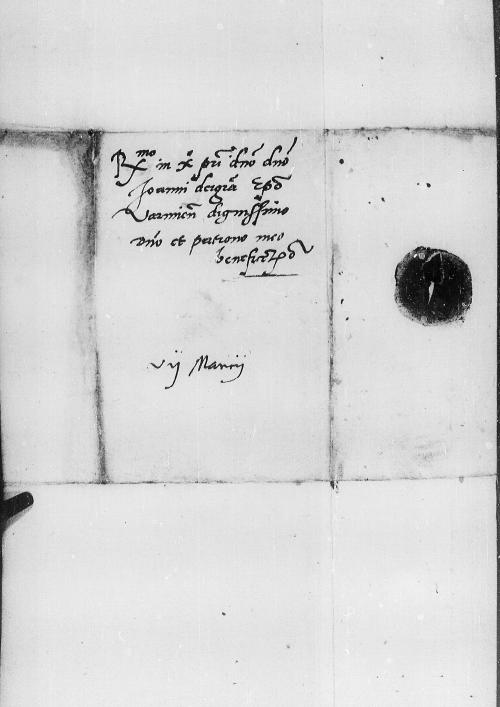 Rmo in X pri dno dno
Joanni dei gra Epo
Varmien dignissimo
dno et patrono meo
vij Marcij